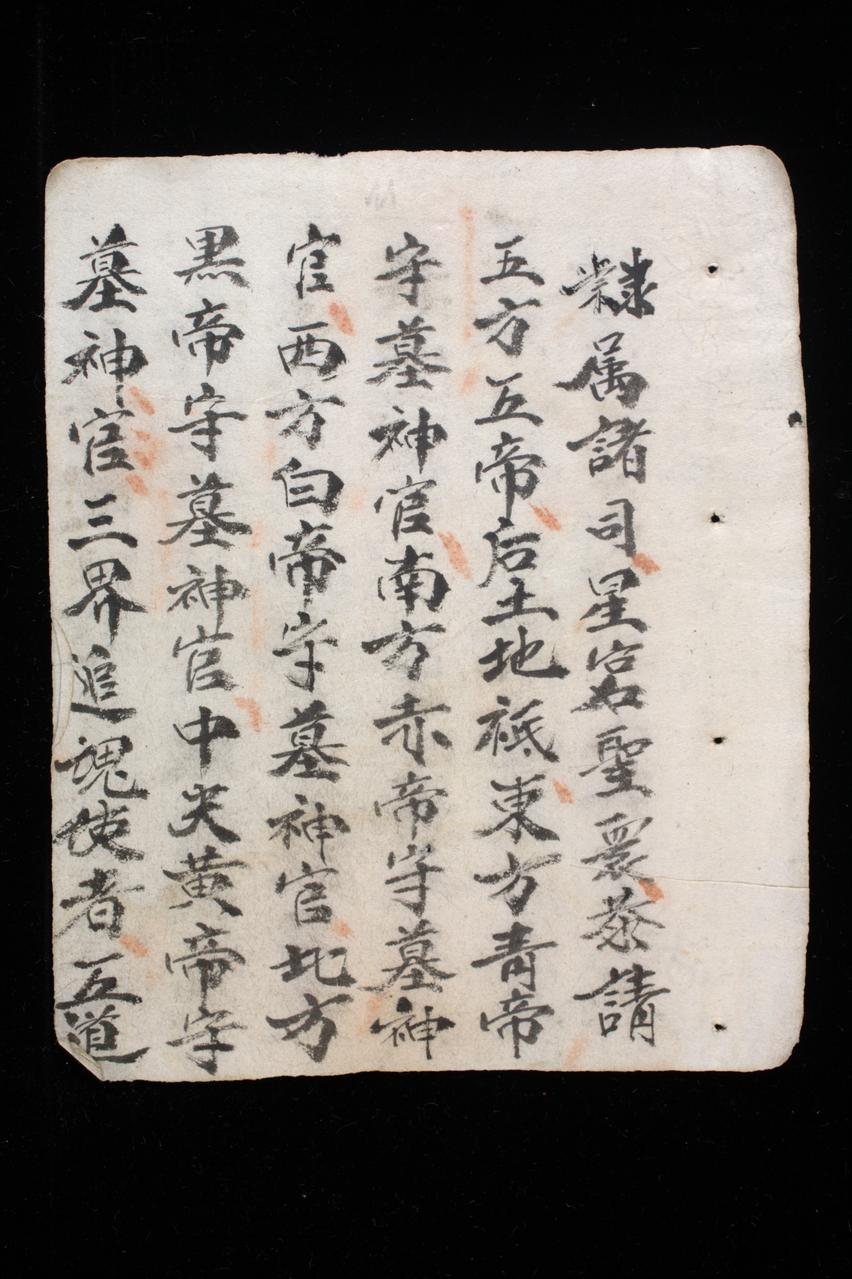 隸属諸司星宿聖眾恭請
五方五帝后土地祇東方青帝
守墓神官南方赤帝守墓神
官西方白帝守墓神官北方
黒帝守墓神官中央黄帝守
墓神官三界追魂使者五道